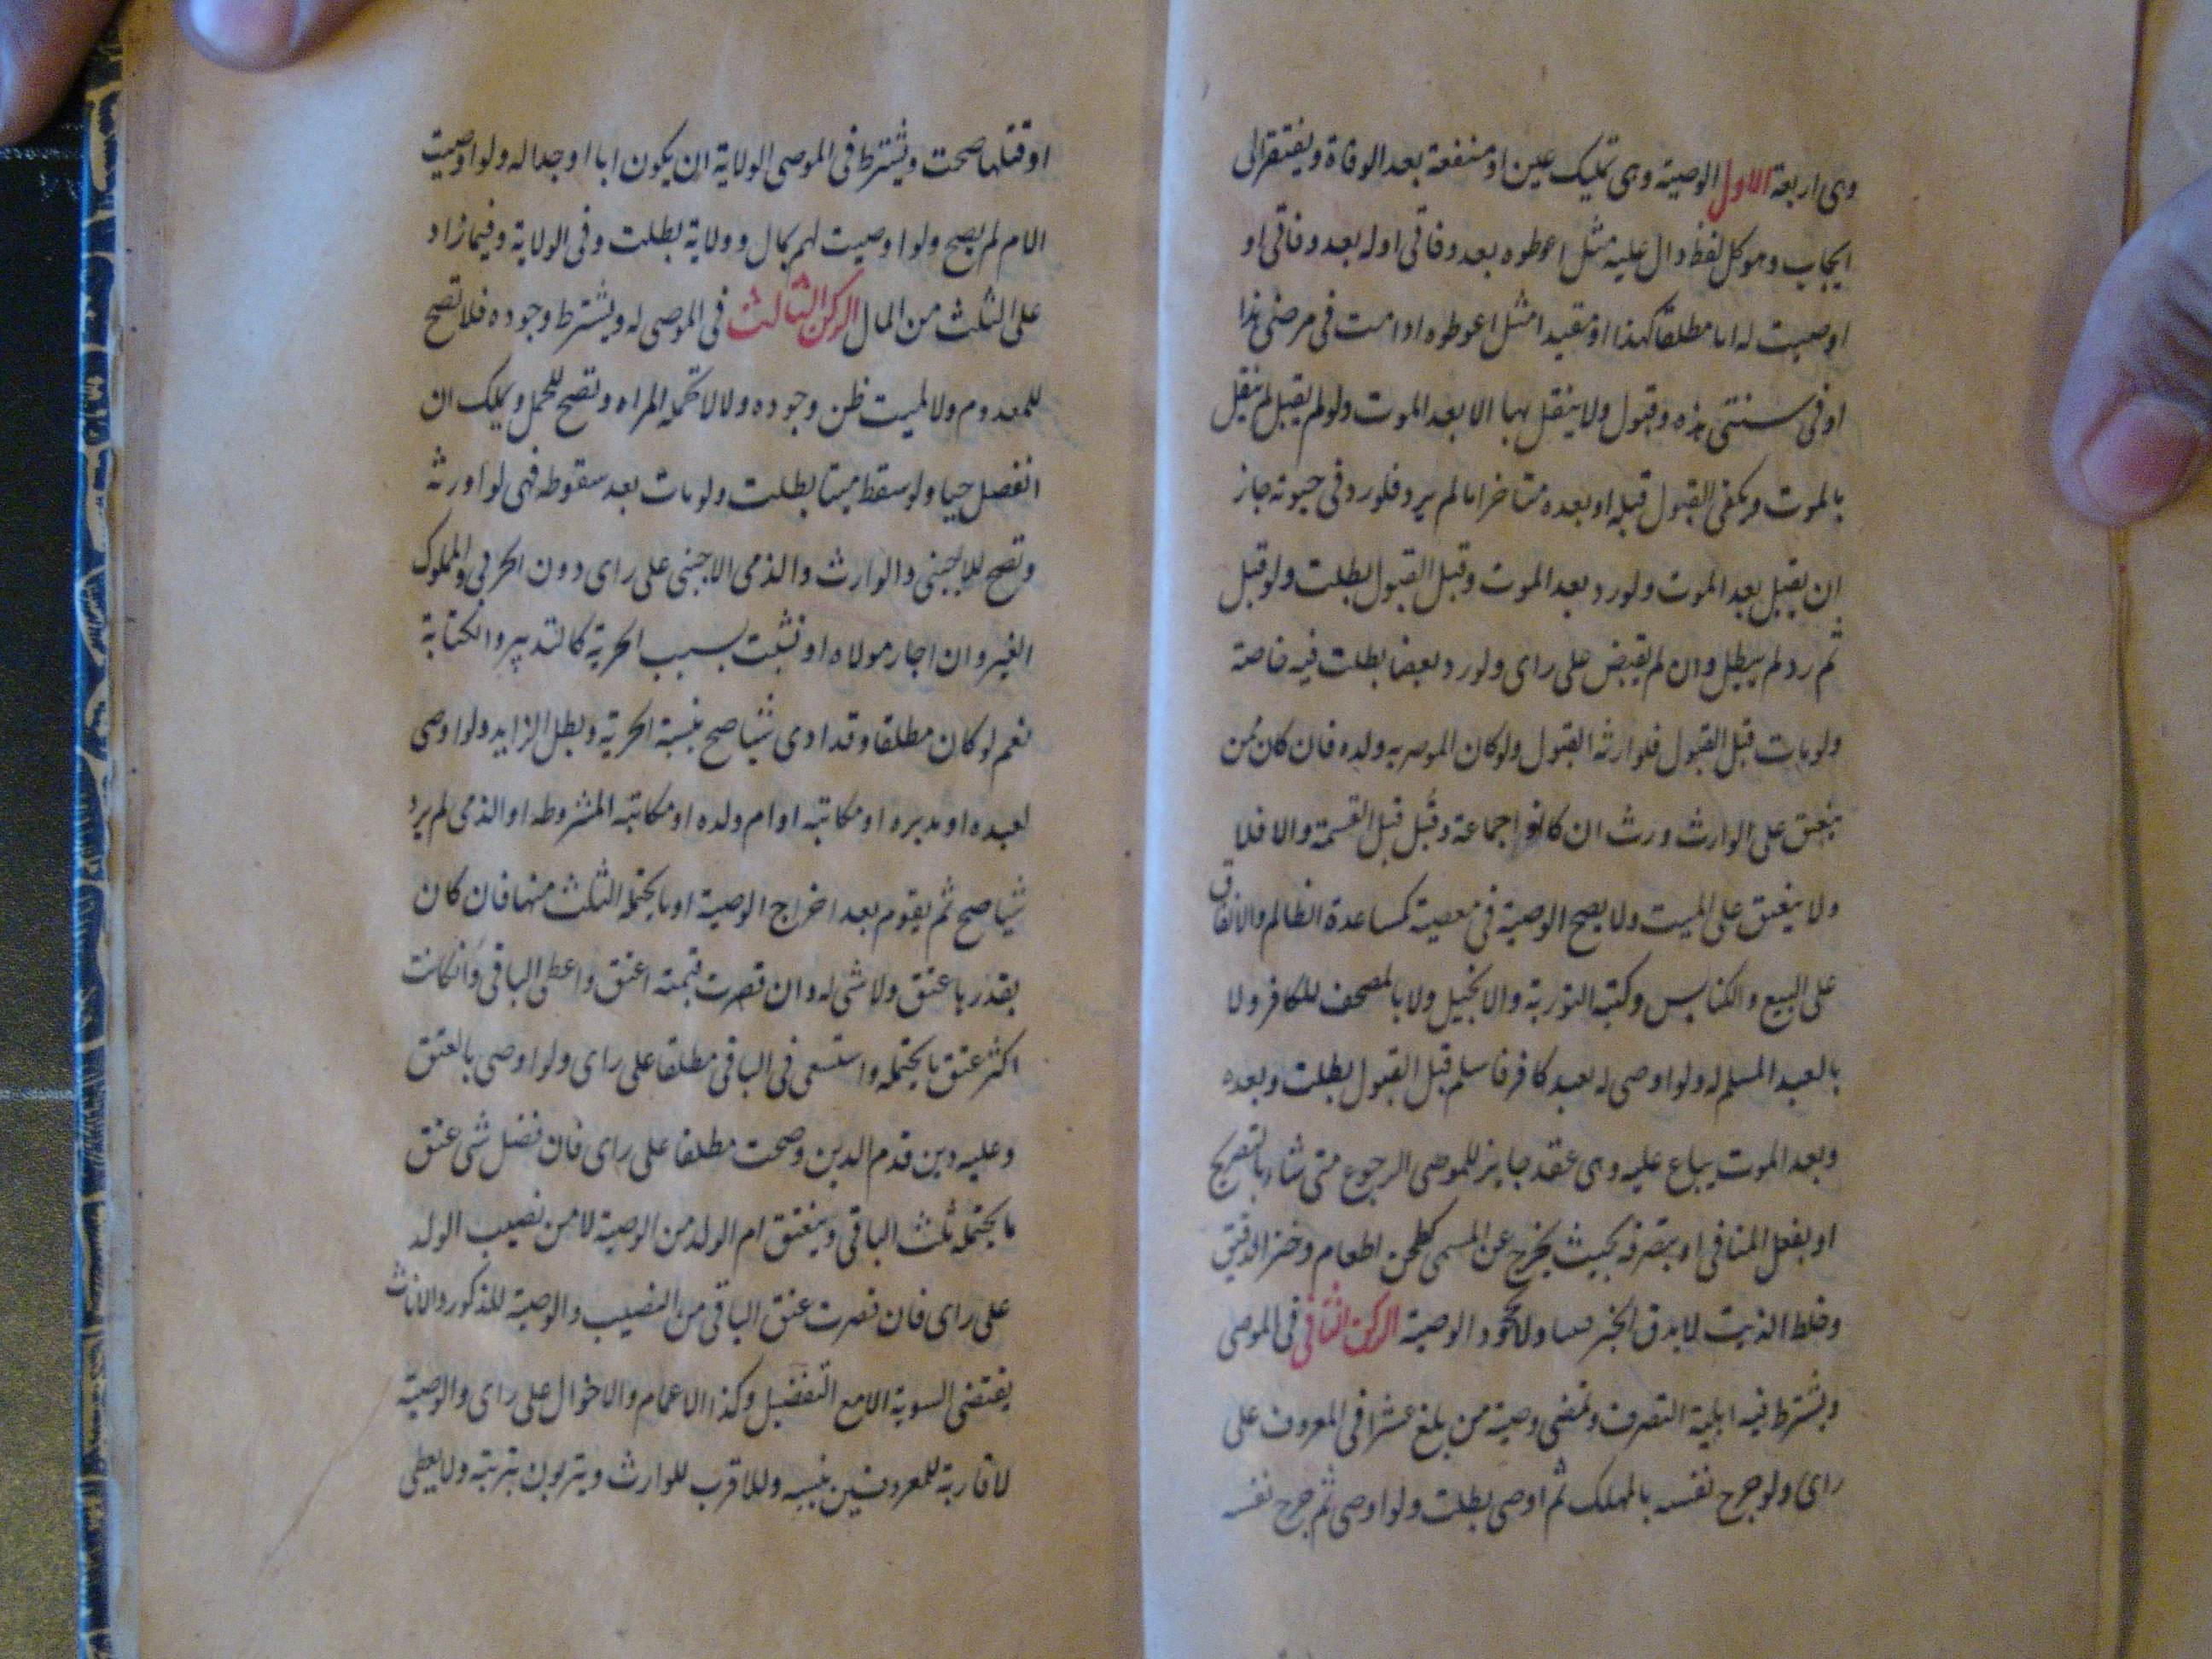 وهى اربعة الاول الوصية وهى تمليك عين او منفعة بعد الوفاة ويفتقر الى
ايجاب وهو كل لفظ دال عليه مثل اعطوه بعد وفاتى اوله بعد وفاتى او
اوصيت له اما مطلقا كهذا او مقيدا مثل اعوطوه اذا مت فى مرضى هذا
او فى سنتى هذه وقبول ولا ينقل بها الا بعد الموت ولو لم يقبل لم ينقل
بالموت ويكفى القبول قبله او بعده متاخرا ما لم يرد فلو رد فى حيوته جاز
ان يقبل بعد الموت ولو رد بعد الموت وقبل القبول بطلت ولو قبل
ثم رد لم يبطل وان لم يقبض على راى ولو رد بعضا بطلت فيه خاصة
ولو مات قبل القبول فلوارثه القبول ولو كان الموصى به ولده فان كان ممن
ينعتق على الوارث ورث ان كانوا جماعة وقبل قبل القسمة والا فلا
ولا ينعتق على الميت ولا يصح الوصية فى معصية كمساعدة الظالم والانفاق
على البيع والكنايس وكتبة التورية والانجيل ولا بالمصحف للكافر ولا
بالعبد المسلم له ولو اوصى له بعبد كافر فاسلم قبل القبول بطلت وبعده
وبعد الموت يباع عليه وهى عقد جايز للموصى الرجوع متى شاء بالتصريح
او بفعل المنافى او بتصرف بحيث يخرج عن المسمى كطحن الطعام وخبز الدقيق
وخلط الزيت لا بدق الخبز ولا بجحود الوصية الركن الثانى فى الموصى
ويشترط فيه اهلية التصرف وتمضى وصية من بلغ عشرا فى المعروف على
راى ولو جرح نفسه بالمهلك ثم اوصى بطلت ولو اوصى ثم جرح نفسه
او قتلها صحت ويشترط فى الموصى الولاية ان يكون ابا او جدا له ولو اوصيت
الام لم يصح ولو اوصيت لهم بمال وولاية بطلت وفى الولاية وفيما زاد
على الثلث من المال الركن الثالث فى الموصى له ويشترط وجوده فلا تصح
للمعدوم ولا لميت ظن وجوده ولا لما تحمله المراه وتصح للحمل ويملك ان
انفصل حيا ولو سقط ميتا بطلت ولو مات بعد سقوطه فهى لوارثه
وتصح للاجنبى والوارث والذمى الاجنبى على راى دون الحربى والمملوك
الغير وان اجاز مولاه او تشبث بسبب الحرية كالتدبير والكتابة
نعم لو كان مطلقا وقد ادى شيئا صح بنسبة الحرية وبطل الزايد ولو اوصى
لعبده او مدبره او مكاتبه او ام ولده او مكاتبه المشروطه او الذى لم يرد
شيا صح ثم يقوم بعد اخراج الوصية او ما يحتمله الثلث منها فان كان
بقدرها عتق ولا شى له وان قصرت قيمته اعتق واعطى الباقى وانكانت
اكثر عتق ما يحتمله واستسعى فى الباقى مطلقا على راى ولو اوصى بالعتق
وعليه دين قدم الدين وصحت مطلقا على راى فان فضل شى عتق
ما يحتمله ثلث الباقى وينعتق ام الولد من الوصية لا من نصيب الولد
على راى فان قصرت عتق الباقى من النصيب والوصية للذكور والاناث
يقتضى السوية الا مع التفضيل وكذا الاعمام والاخوال على راى والوصية
لاقاربة للمعروفين بنسبه وللاقرب للوارث ويترتبون بترتبه ولا يعطى